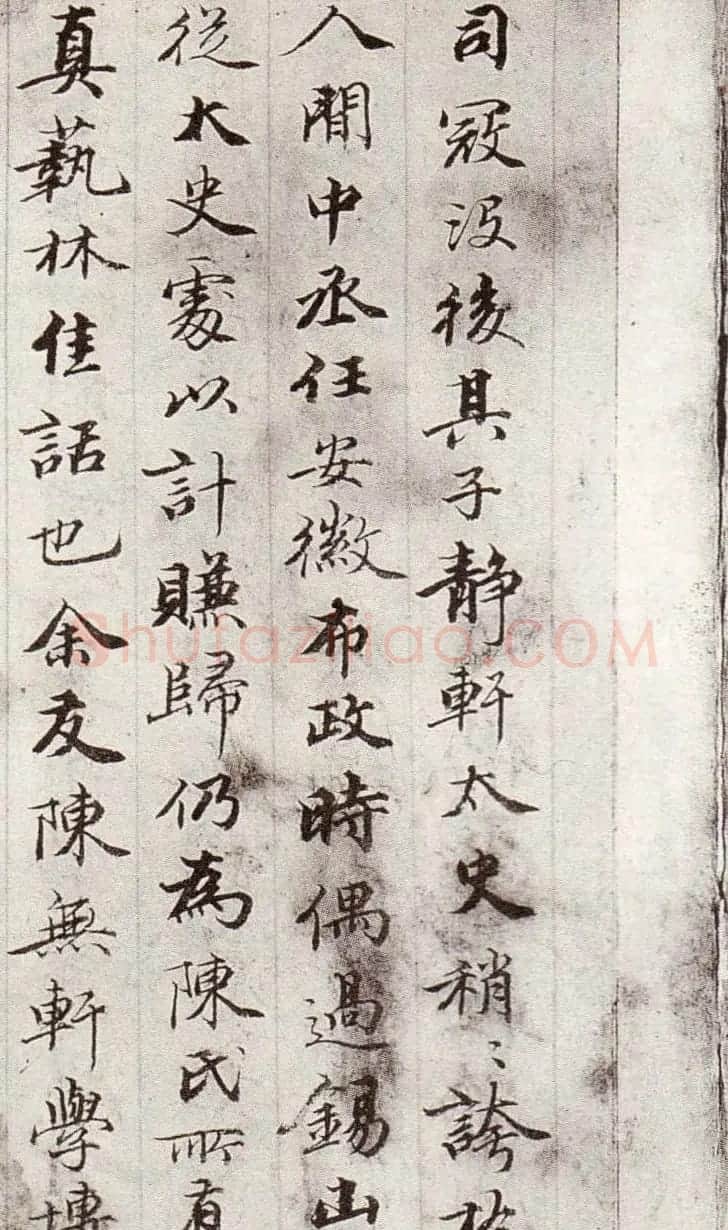 司寇没後其子静軒太史稍〻誇於
人間中丞任安徽布政時偶過錫山
從太史處以計賺歸仍為陳氏所有
真藝林佳話也余友陳無軒學博
Shufaziliao.COM